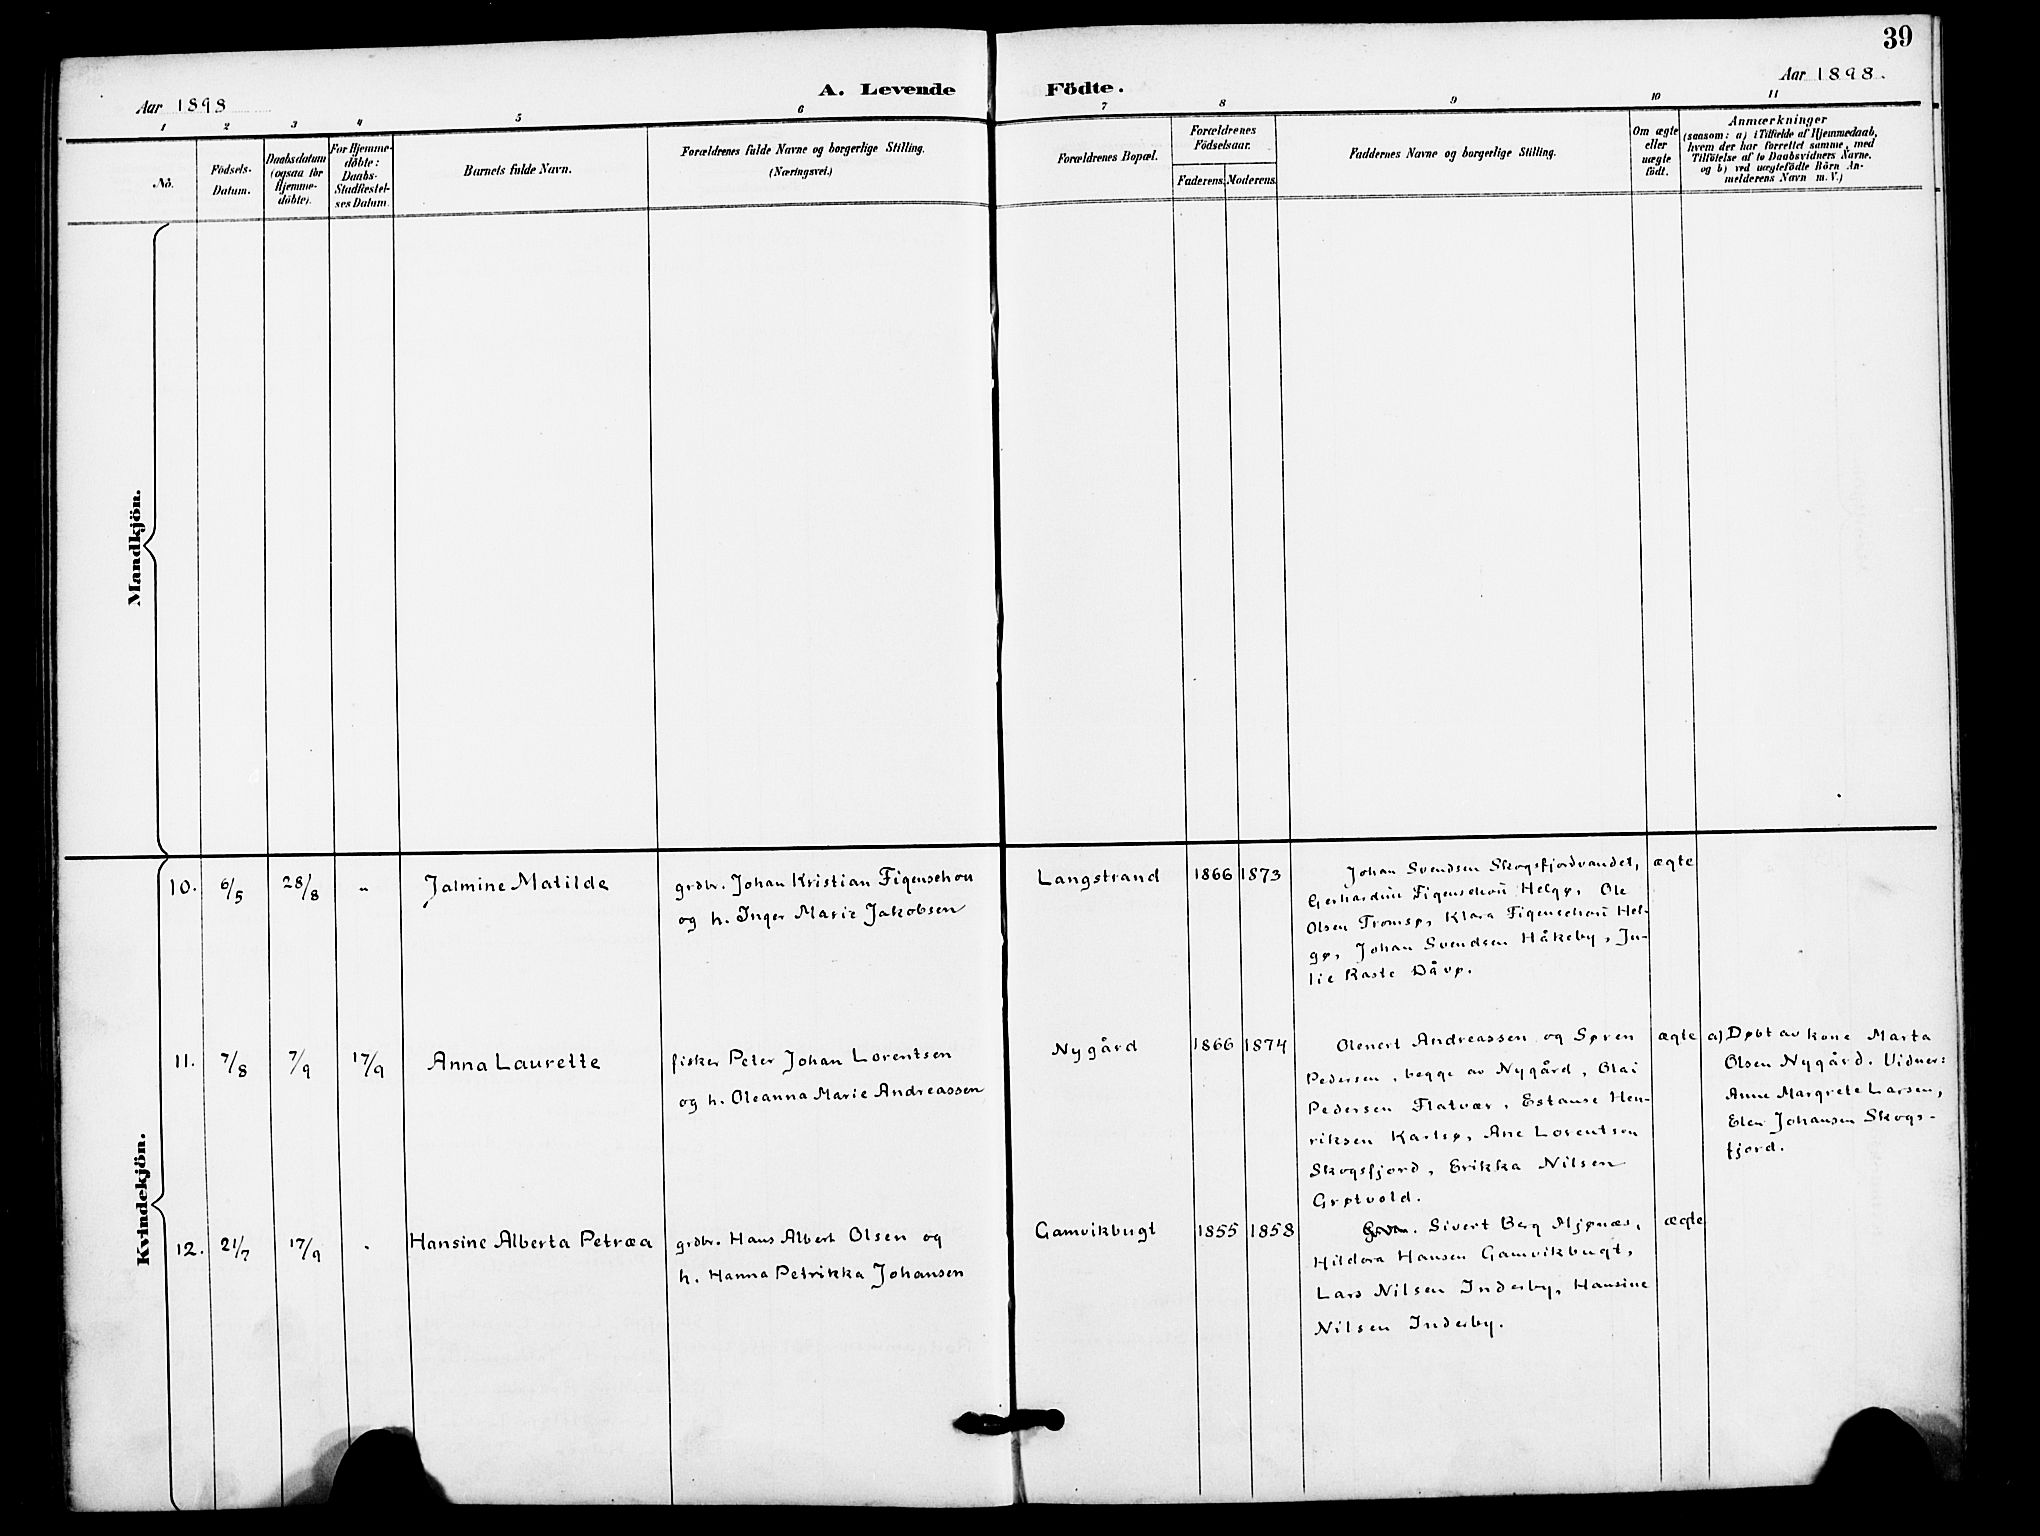 39
Aar 1898
A. Levende Födte.
Aar 1898.
1 2 3 4 5 6 7 8 9 10 11
No.
Födsels-
Datum.
Daabsdatum
(ogsaa for
Hjemme-
döbte).
For Hjemme-
döbte:
Daabs-
Stadfæstel-
ses Datum.
Barnets fulde Navn.
Forældrenes fulde Navne og borgerlige Stilling.
(Næringsvei.)
Forældrenes Bopæl.
Forældrenes
Födselsaar.
Faderens. Moderens.
Faddernes Navne og borgerlige Stilling.
Om ægte
eller
uægte
födt.
Anmærkninger
(saasom: a) i Tilfælde af Hjemmedaab,
hvem der har forrettet samme, med
Tilföielse af to Daabsvidners Navne.
og b) ved uægtefödte Börn An-
melderens Navn m. V.)
Mandkjön.
Kvindekjön.
10. 6/5 28/8 „ Jalmine Matilde
grdbr. Johan Kristian Figenschou
og h. Inger Marie Jakobsen
Langstrand 1866 1873
Johan Svendsen Skogsfjordvandet,
Gerhardine Figenschou Helgø, Ole
Olsen Tromsø, Klara Figenschou Hel-
gø, Johan Svendsen Håkeby, Ju-
lie Raste Dåvø.
ægte
11. 7/8 7/9 17/9 Anna Laurette
fisker Peter Johan Lorentsen
og h. Oleanna Marie Andreassen
Nygård 1866 1874
Olenert Andreassen og Søren
Pedersen, begge av Nygård, Olai
Pedersen Flatvær, Estanse Hen-
riksen Karlsø, Ane Lorentsen
Skogsfjord, Erikka Nilsen
Grøtvold.
ægte
a) Døbt av kone Marta
Olsen Nygård. Vidner:
Anne Margrete Larsen,
Elen Johansen Skogs-
fjord.
12. 21/7 17/9 . Hansine Alberta Petræa
grdbr. Hans Albert Olsen og
h. Hanna Petrikka Johansen
Gamvikbugt 1855 1858
Sivert Berg Mjønæs,
Hildora Hansen Gamvikbugt,
Lars Nilsen Inderby, Hansine
Nilsen Inderby.
ægte